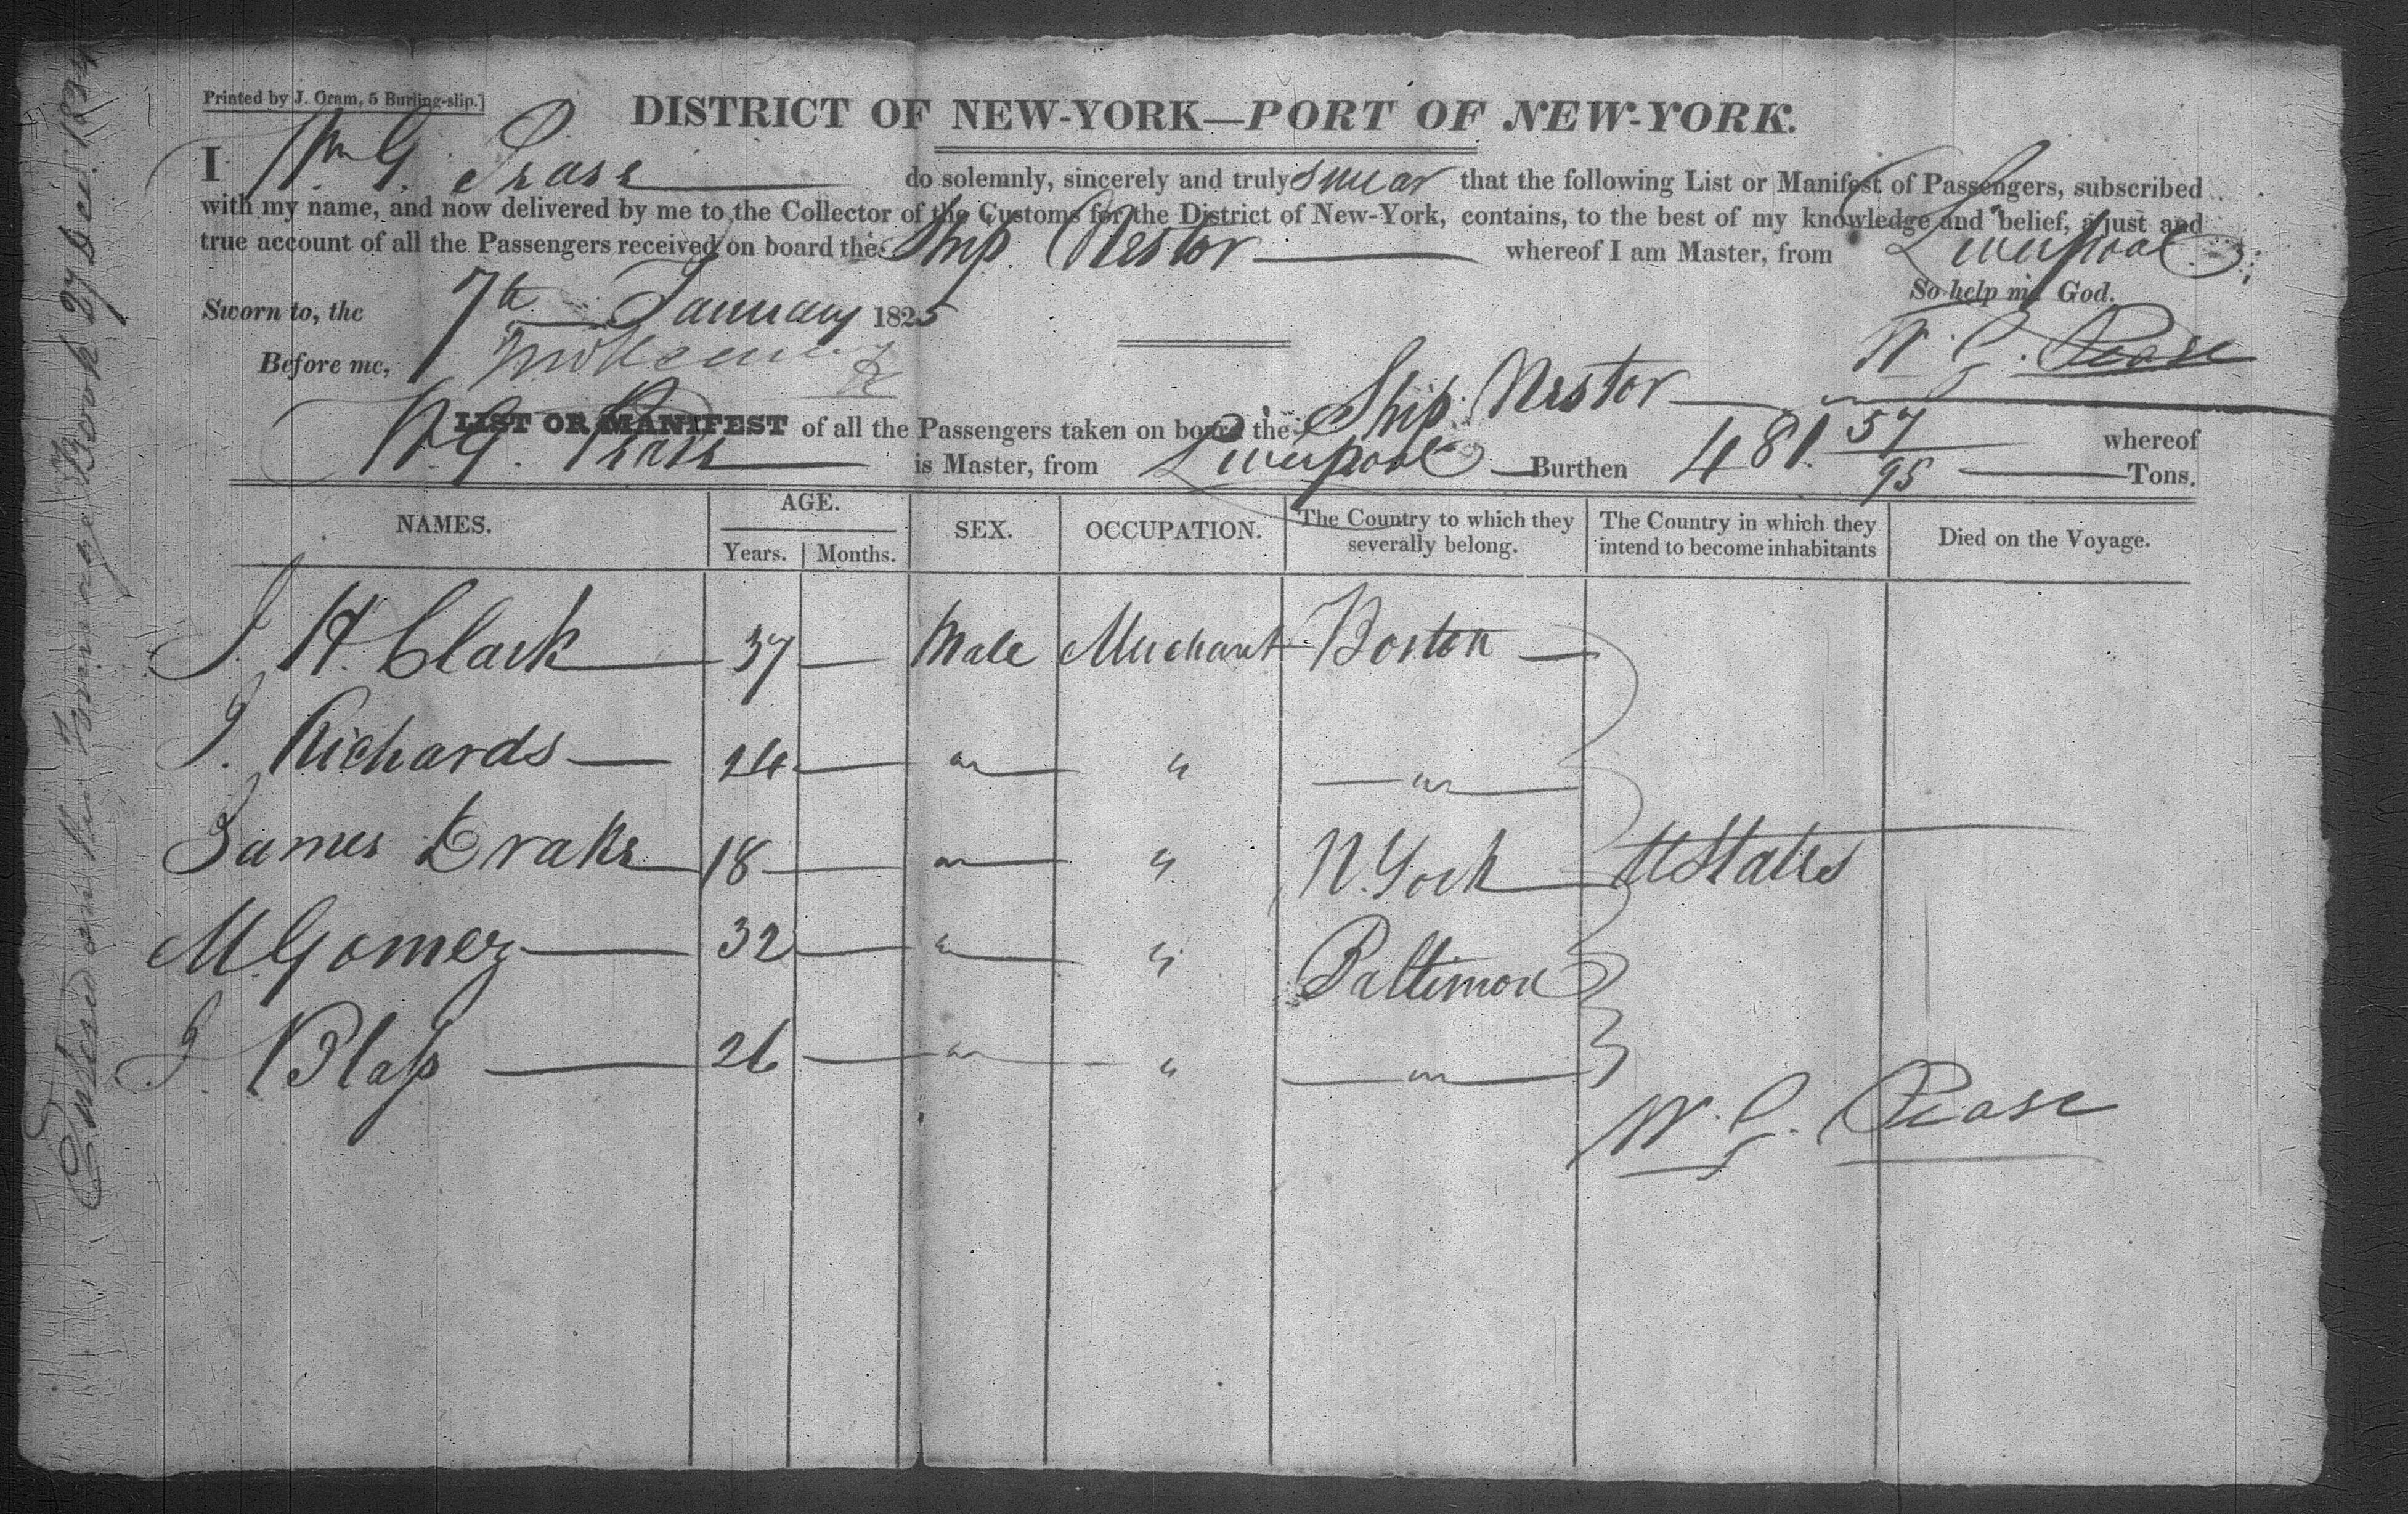 Printed by J. Oram, 5 Burling-slip.]
DISTRICT OF NEW-YORK—PORT OF NEW-YORK.
I Wm G. Pease do solemnly, sincerely and truly swear that the following List or Manifest of Passengers, subscribed
with my name, and now delivered by me to the Collector of the Customs for the District of New-York, contains, to the best of my knowledge and belief, a just and
true account of all the Passengers received on board the Ship Nestor whereof I am Master, from Liverpool
So help me God.
Sworn to, the 7th January 1825
W. G. Pease
Before me,
LIST OR MANIFEST of all the Passengers taken on board the Ship Nestor whereof
W. G. Pease is Master, from Liverpool Burthen 481 57/95 Tons.
NAMES. AGE. SEX. OCCUPATION. The Country to which they severally belong. The Country in which they intend to become inhabitants Died on the Voyage.
Years. Months.
J. H. Clark 37 — Male Merchant Boston —
J. Richards — 24 — " " — " —
James Drake 18 — " " N. York UStates
M. Gomez — 32 — " " Baltimore
J. Blass — 26 — " " — " —
W. G. Pease
Entered on the Tonnage Book 27 Dec. 1824